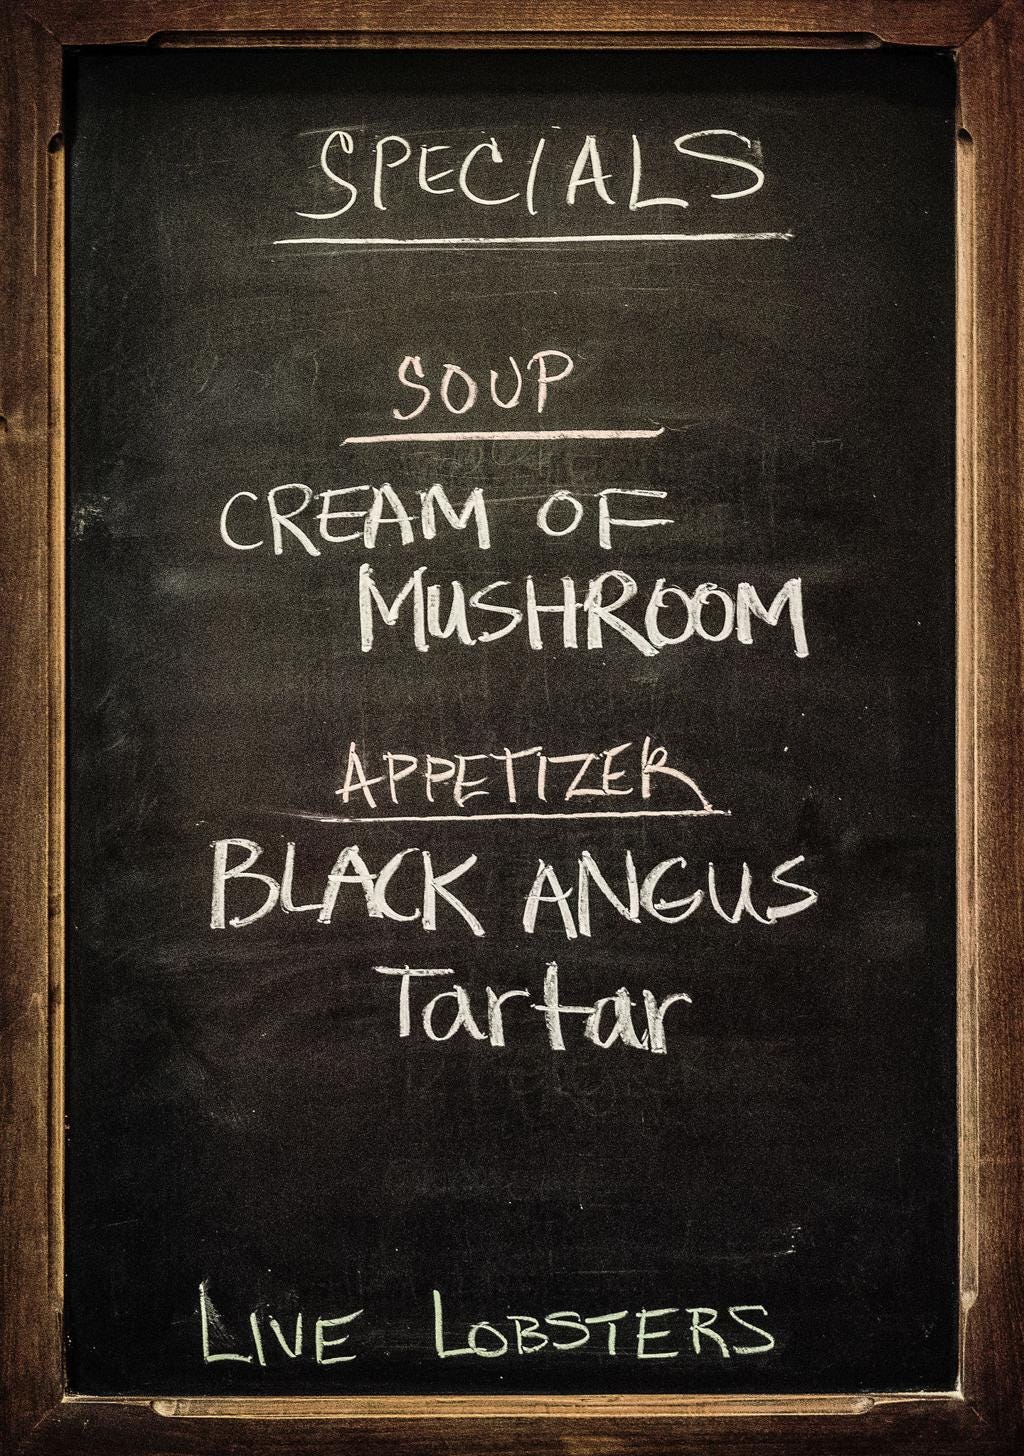 SPECIALS
SOUP
CREAM OF
MUSHROOM
APPETIZER
BLACK ANGUS
Tartar
LIVE LOBSTERS